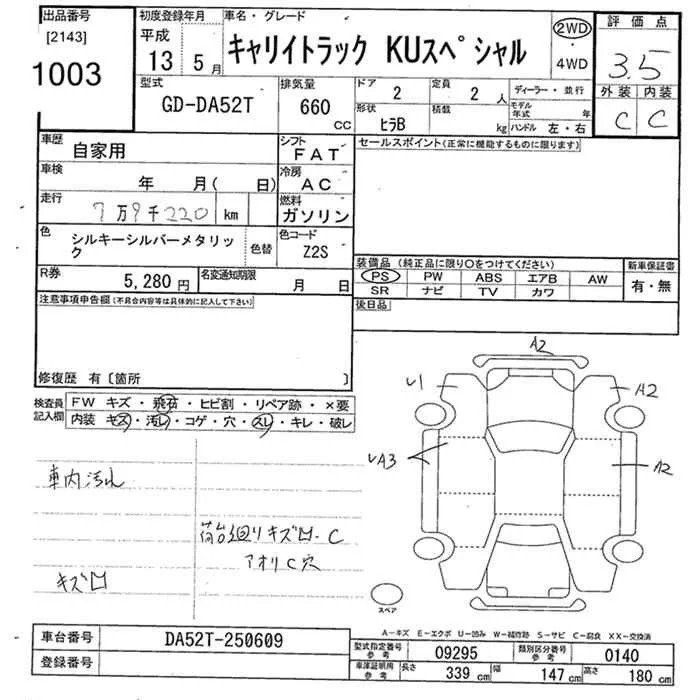 出品番号
[2143]
1003
初度登録年月
平成
13 5月
車名・グレード
キャリイトラック KUスペシャル
2WD
・
4WD
評価点
3.5
外装 内装
C C
型式
GD-DA52T
排気量
660
CC
ドア
2
形状
ヒラB
定員
2 人
積載
kg
ディーラー・並行
モデル年式 年
ハンドル 左・右
車歴
自家用
シフト
FAT
セールスポイント(正常に機能するものに限ります)
車検
年 月( 日)
冷房
AC
走行
7万9千220 km
燃料
ガソリン
色
シルキーシルバーメタリック
色替
色コード
Z2S
装備品(純正品に限り○をつけてください)
新車保証書
PS PW ABS エアB AW
SR ナビ TV カワ
有・無
R券
5,280円
名変通知期限
月 日
後日品
注意事項申告欄(不具合内容等は具体的に記入して下さい)
修復歴 有〔箇所 〕
検査員記入欄
FW キズ・飛石・ヒビ割・リペア跡・×要
内装 キズ・汚れ・コゲ・穴・スレ・キレ・破レ
車内汚れ
キズ凹
荷台廻りキズ凹・C
アオリC穴
A2
U1
A2
UA3
A2
スペア
A-キズ E-エクボ U-凹み W-補修跡 S-サビ C-腐食 XX-交換済
車台番号
DA52T-250609
登録番号
型式指定番号 参考
09295
類別区分番号 参考
0140
車庫証明用 参考
長さ 339 cm
幅 147 cm
高さ 180 cm